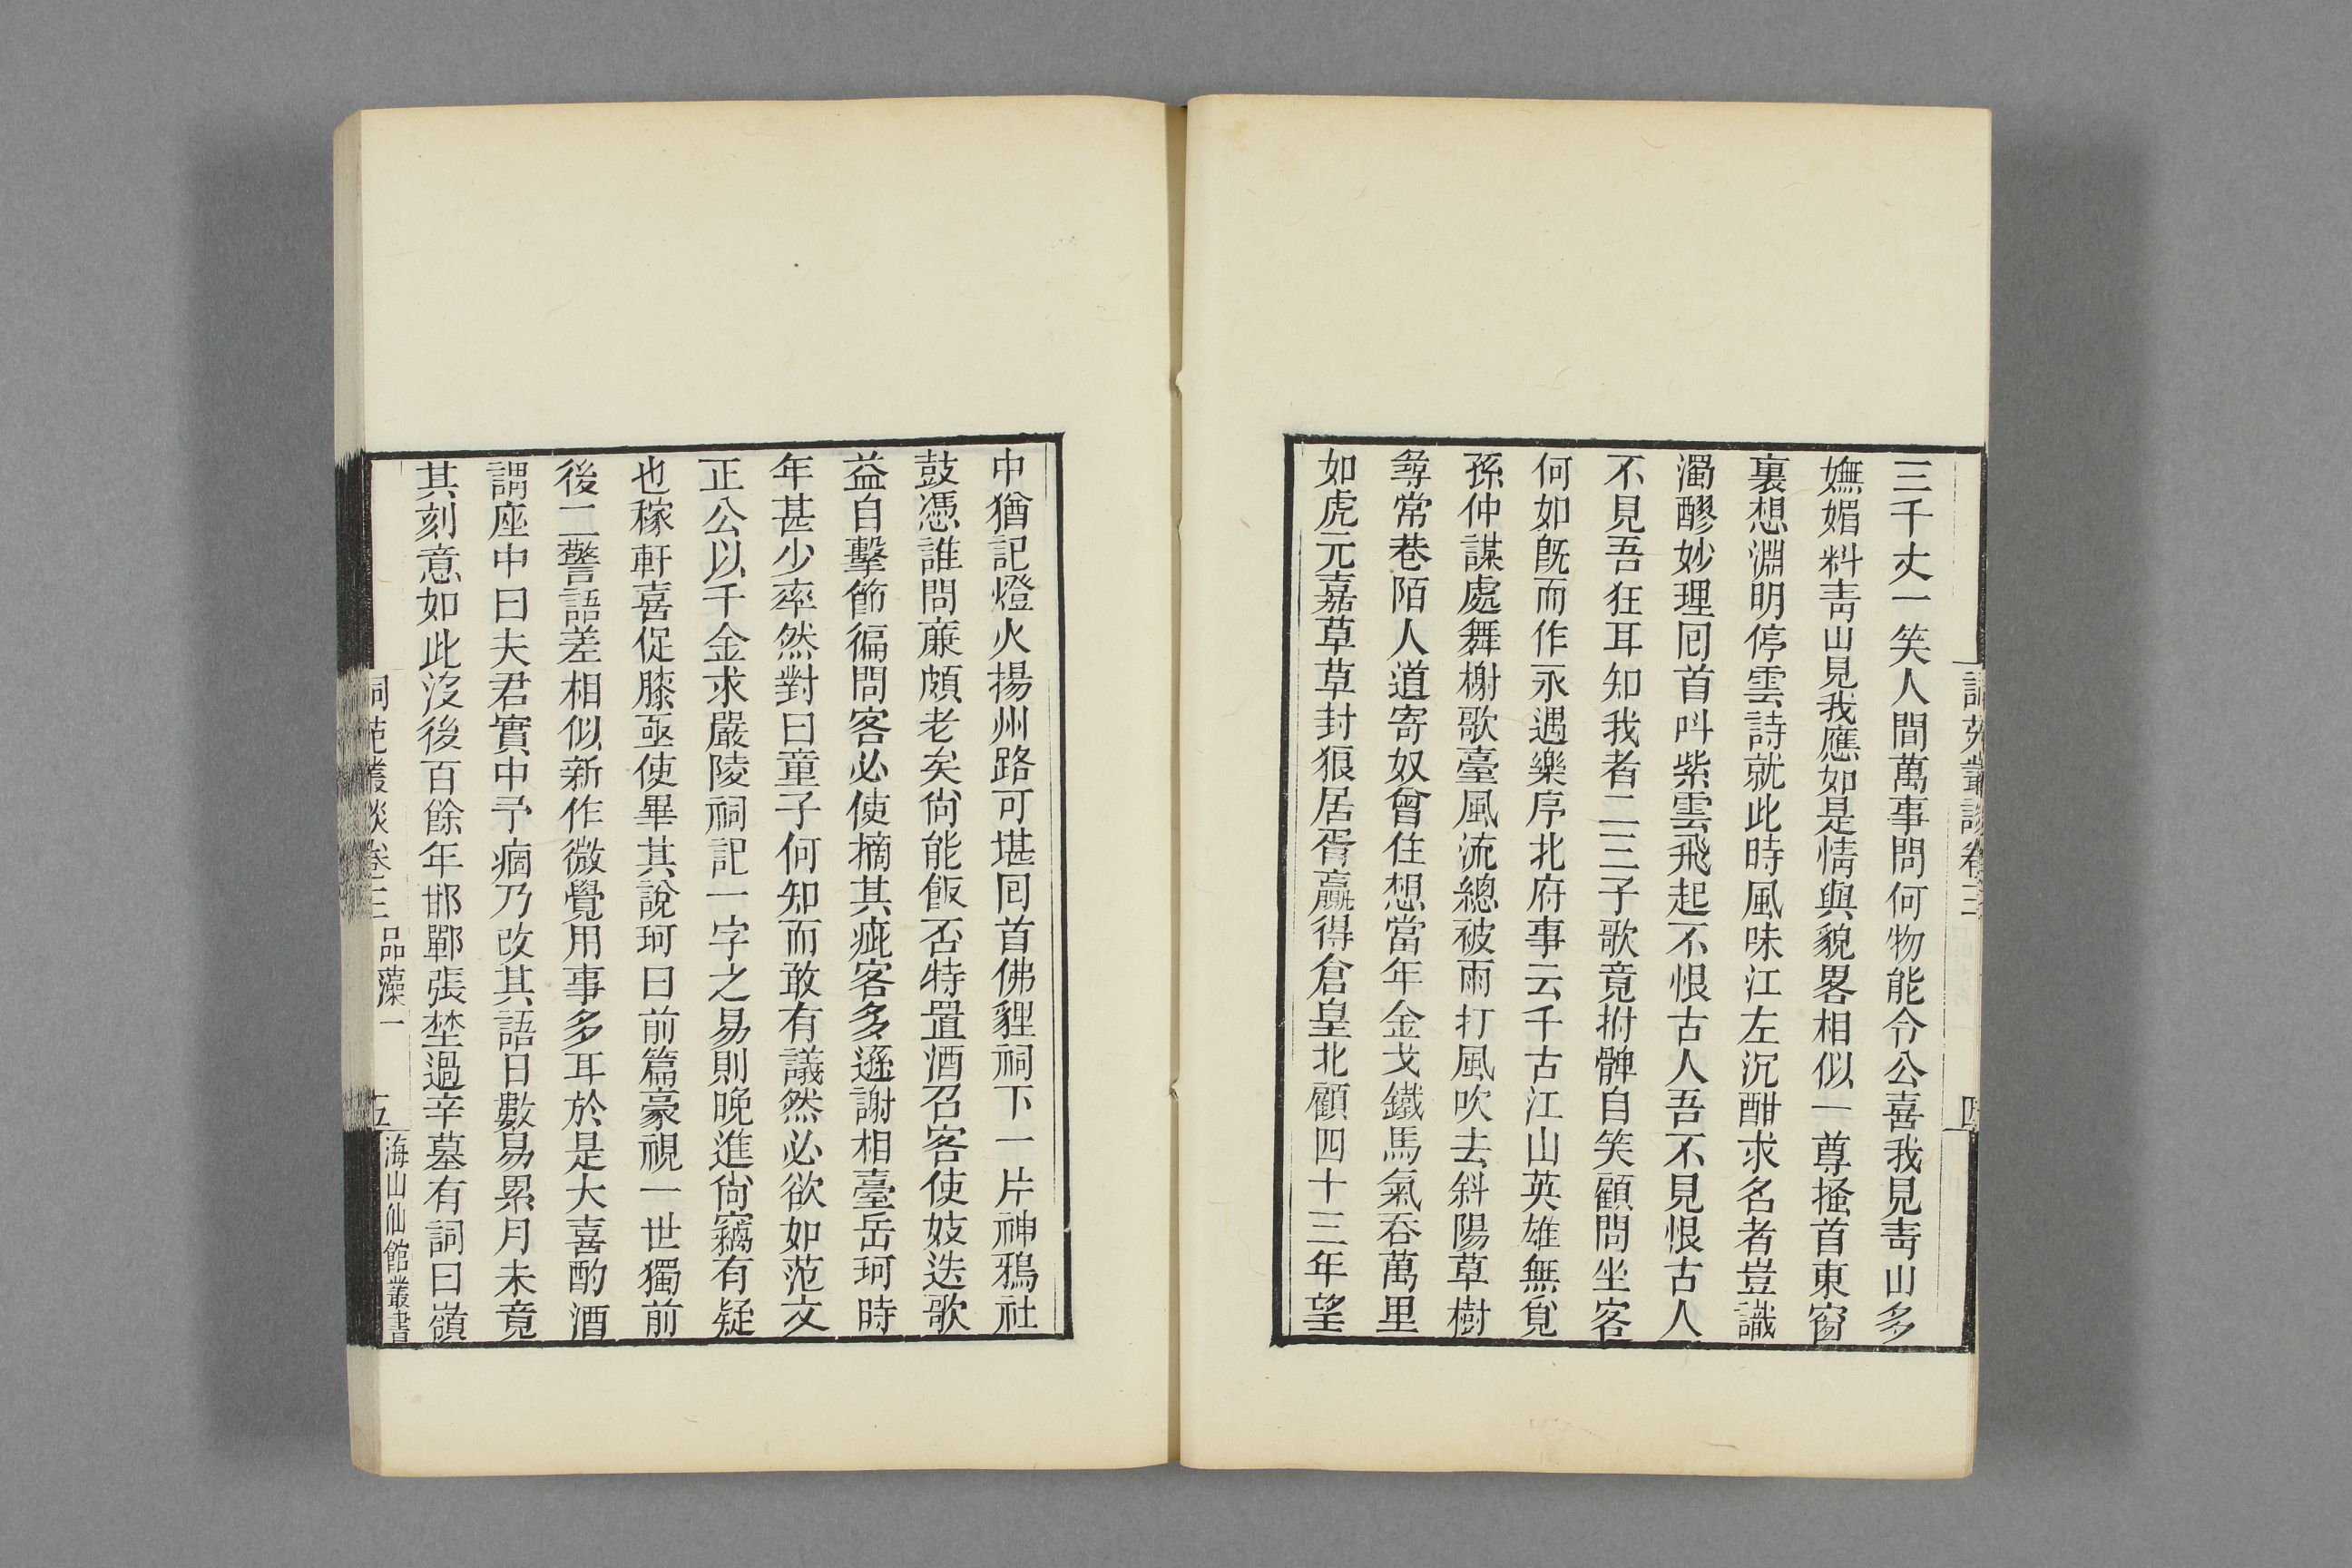 三千丈一笑人間萬事問何物能令公喜我見靑山多
嫵媚料靑山見我應如是情與貌畧相似一尊搔首東窗
裏想淵明停雲詩就此時風味江左沉酣求名者豈識
濁醪妙理囘首呌紫雲飛起不恨古人吾不見恨古人
不見吾狂耳知我者二三子歌竟拊髀自笑顧問坐客
何如旣而作永遇樂序北府事云千古江山英雄無覓
孫仲謀處舞榭歌臺風流總被雨打風吹去斜陽草樹
尋常巷陌人道寄奴曾住想當年金戈鐵馬氣吞萬里
如虎元嘉草草封狼居胥贏得倉皇北顧四十三年望
中猶記燈火揚州路可堪囘首佛貍祠下一片神鴉社
鼓憑誰問廉頗老矣尙能飯否特置酒召客使妓迭歌
益自擊節徧問客必使摘其疵客多遜謝相臺岳珂時
年甚少率然對曰童子何知而敢有議然必欲如范文
正公以千金求嚴陵祠記一字之易則晚進尙竊有疑
也稼軒喜促膝亟使畢其說珂曰前篇豪視一世獨前
後二警語差相似新作微覺用事多耳於是大喜酌酒
謂座中曰夫君實中予痼乃改其語日數易累月未竟
其刻意如此沒後百餘年邯鄲張埜過辛墓有詞曰嶺
詞苑叢談卷三 品藻一 五 海山仙館叢書